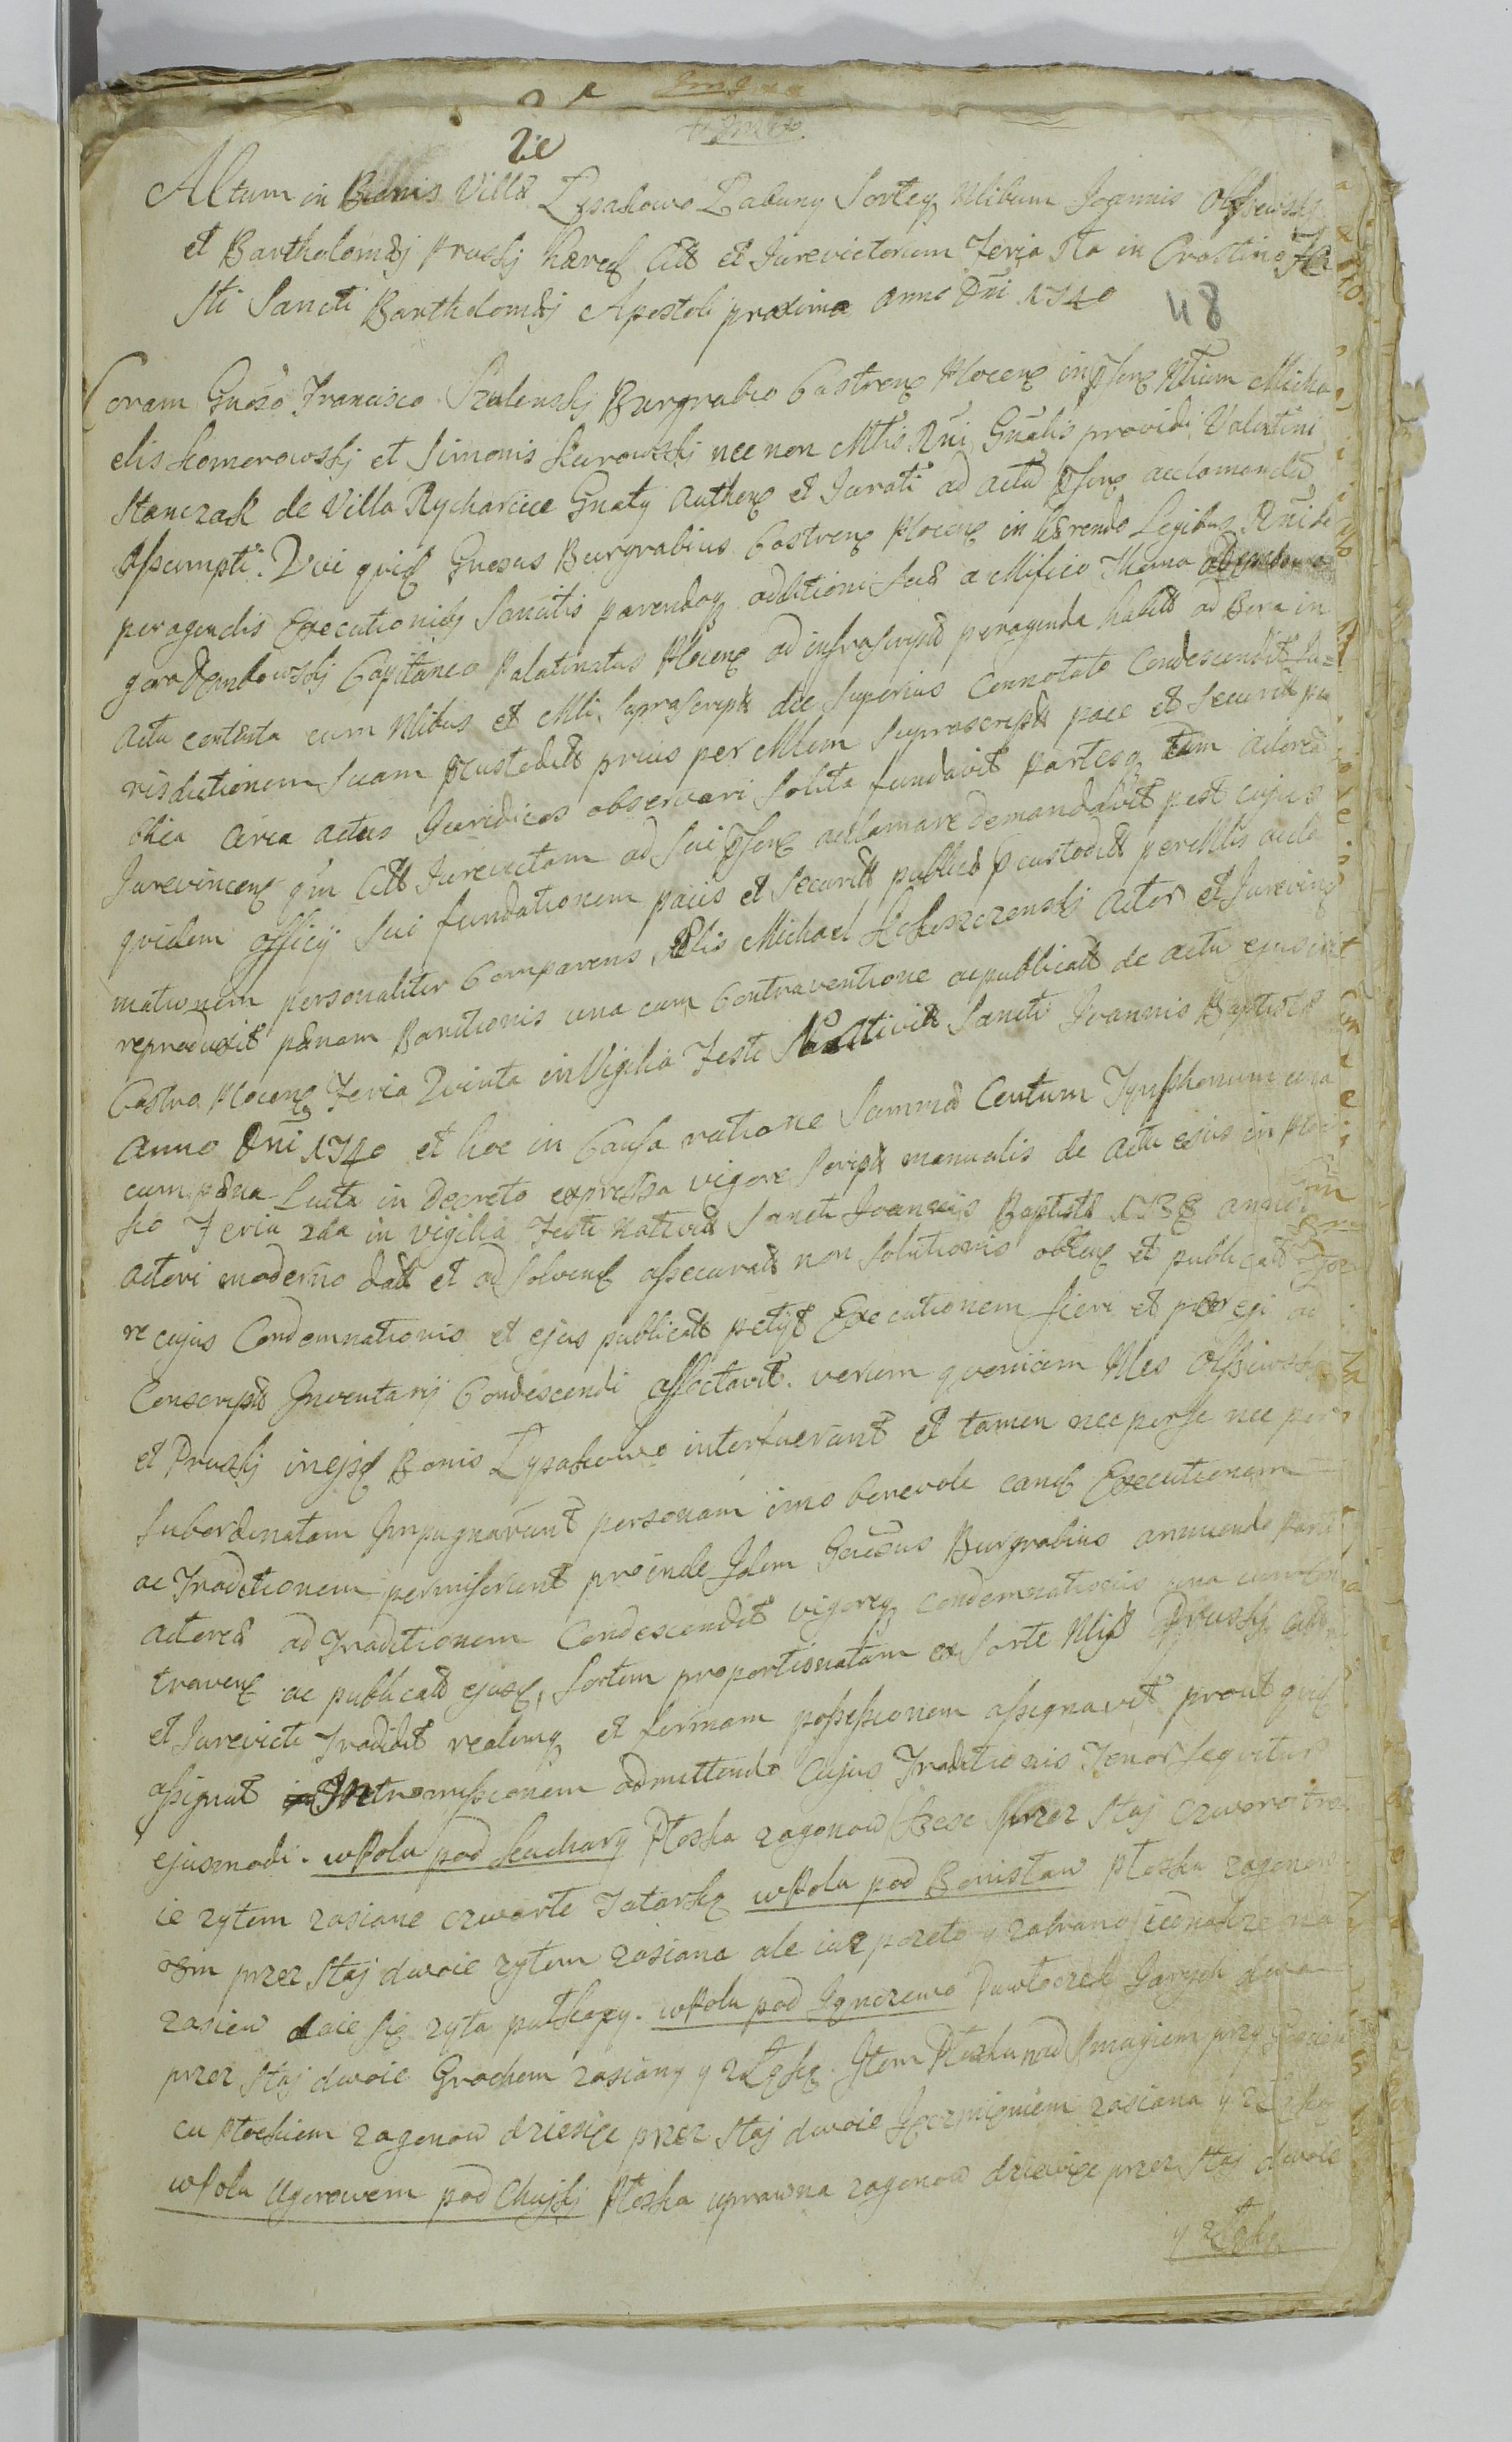 Actum in Bonis Villae Łysakowo Łabuny Sorteq Nlibum Joannis Olszewskj
et Bartholomaej Pruskj haered Citt et Jurevictorum Feria 5ta in Crastino Fe
sti Sancti Bartholomaej Apostoli proxima Anno Dni 1740
48
Coram Gnoso Francisco Szulenskj Burgrabio Castren Plocen in Psen Nlium Micha
elis Komorowskj et Simonis Kurowskj nec non Mtis Rni Gnalis providi Valentini
Stanczak de Villa Rycharcice Gnaty Authen et Jurati ad actū Psen acclamandū
Assumpti. Qui quid Gnosus Burgrabius Castren Plocen in haerendo Legibus Rni de
peragendis Executionibq Sancitis parendoq additioni suae a Mfico Thoma
gora Dembowskj Capitaneo Palatinatus Plocen ad infrascripta peragenda habitt ad Bona in
Actu contenta cum Nlibus et Mli suprascript die superius connotato condescendit Ju=
risdictionem suam Pcustodītt prius per Mlem suprascriptt pace et securitt pu
blica circa actus Juridicos observari solita fundavit Partesq tam actorea
Jurevincen qm Citt Jurevictam ad sui Psen acclamare demandavit post cujus
quidem officij sui fundationem pacis et securitt publicae Pcustodītt per Mlis accla
mationem personaliter Comparens Nlis Michael Actor et Jurevin
reproduxit paenam Banitionis una cum Contraventione ac publicatt de actu ejus in
Castro Plocen Feria Quinta in Vigilia Festi Nativitt Sancti Joannis Baptistae
Anno Dni 1740 et hoc in Causa ratione Summae Centum Tymphonum una
cum paena Lucta in Decreto expressa vigore Script manualis de actu ejus in
Feria 2da in vigilia Festi Nativitt Sancti Joannis Baptistae 1738 anni
actori moderno datt et ad solven assecuratt non solutionis obten et publicatt
re cujus Condemnationis et ejus publicatt petijt Executionem fieri et peragi ad
Conscript Inventarij Condescendi affectavit. verum quoniam Nles Olszewskj
et Pruskj in ejsd Bonis Łysakowo interfuerunt et tamen nec per se nec per
subordinatam Impugnarunt personam imo benevole eand Executionem
ac Traditionem permiserunt proinde Idem Gnosus Burgrabius annuendo Parti
actoreae ad Traditionem Condescendit vigoreq condemnationis una cum con
traven ac publicatt ejusd, sortem proportionatam ex Sorte Nlis Pruskj citti
et Jurevicti Tradidit realemq et firmam possessionem assignavit prout quid
assignat Intromissionem admittendo Cujus Traditionis Tenor sequitur
ejusmodi. w Polu pod Kuchary Płoska zagonow sześć przez staj czworo troi
ie zytem zasiane czwarte Tatarką w Polu pod Bonisław Płoska zagonow
osm przez staj dwoie zytem zasiana ale iuz pozęto y zabrano iednakze na
zasiew daie się zyta pułkopy. w Polu pod Pawłoczek Jarych dwa
przez staj dwoie Grochem zasiany y z Łąką. Item Płoska nad Smugiem przy Goscien
cu Płockiem zagonow dziesięc przez staj dwoie Jęczmięniem zasiana y z Łąką
w Polu Ugorowem pod Chujskj Płoska uprawna zagonow dziewięc przez staj dwoie
y z Łąką